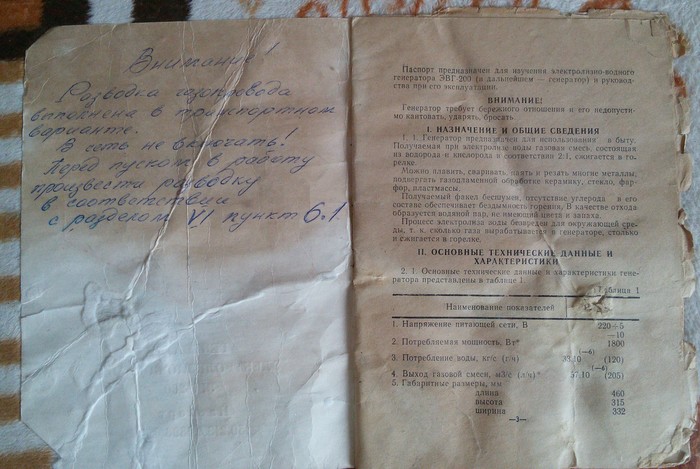 Внимание!
Разводка газопровода
выполнена в транспортном
варианте.
В сеть не включать!
Перед пуском в работу
произвести разводку
в соответствии
с разделом VI пункт 6.1
Паспорт предназначен для изучения электролизно-водного
генератора ЭВГ-200 (в дальнейшем — генератор) и руководства при его эксплуатации.
ВНИМАНИЕ!
Генератор требует бережного отношения и его недопустимо кантовать, ударять, бросать.
I. НАЗНАЧЕНИЕ И ОБЩИЕ СВЕДЕНИЯ
1. 1. Генератор предназначен для использования в быту.
Получаемая при электролизе воды газовая смесь, состоящая
из водорода и кислорода в соответствии 2:1, сжигается в горелке.
Можно плавить, сваривать, паять и резать многие металлы,
подвергать газопламенной обработке керамику, стекло, фарфор, пластмассы.
Получаемый факел бесшумен, отсутствие углерода в его
составе обеспечивает бездымность горения. В качестве отхода
образуется водяной пар, не имеющий цвета и запаха.
Процесс электролиза воды безвреден для окружающей среды, т. к. сколько газа вырабатывается в генераторе, столько
и сжигается в горелке.
II. ОСНОВНЫЕ ТЕХНИЧЕСКИЕ ДАННЫЕ И
ХАРАКТЕРИСТИКИ
2. 1. Основные технические данные и характеристики генератора представлены в таблице 1.
Таблица 1
Наименование показателей
1. Напряжение питающей сети, В 220+5
—10
2. Потребляемая мощность, Вт* 1800
(—6)
3. Потребление воды, кг/с (г/ч) 33.10 (120)
(—6)
4. Выход газовой смеси, м3/с (л/ч)* 57.10 (205)
5. Габаритные размеры, мм
длина 460
высота 315
ширина 332
—3—